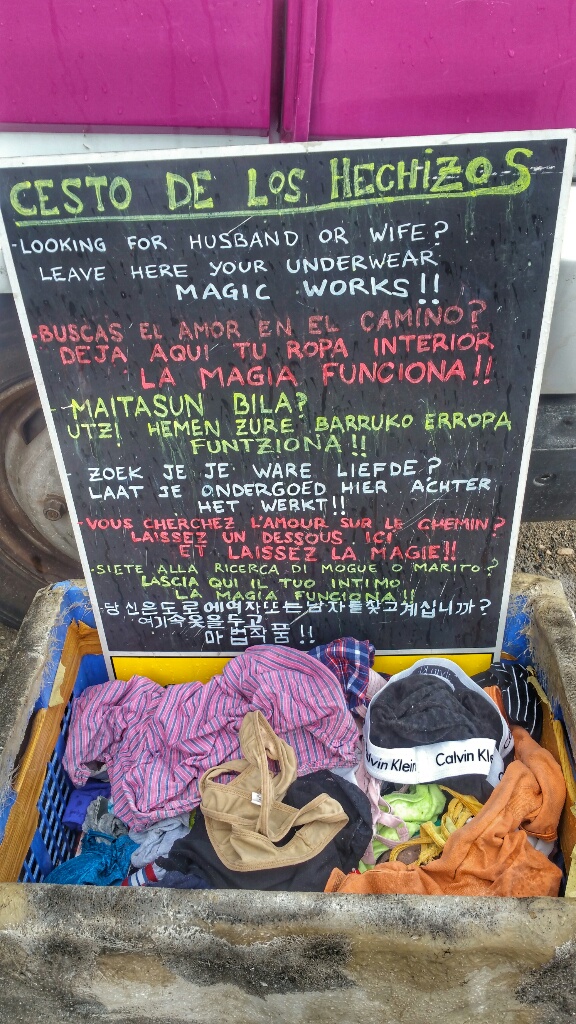 CESTO DE LOS HECHIZOS
-LOOKING FOR HUSBAND OR WIFE?
LEAVE HERE YOUR UNDERWEAR
MAGIC WORKS!!
-BUSCAS EL AMOR EN EL CAMINO?
DEJA AQUI TU ROPA INTERIOR
LA MAGIA FUNCIONA!!
-MAITASUN BILA?
UTZI HEMEN ZURE BARRUKO ERROPA
FUNTZIONA!!
-ZOEK JE JE WARE LIEFDE?
LAAT JE ONDERGOED HIER ACHTER
HET WERKT!!
-VOUS CHERCHEZ L'AMOUR SUR LE CHEMIN?
LAISSEZ UN DESSOUS ICI
ET LAISSEZ LA MAGIE!!
-SIETE ALLA RICERCA DI MOGUE O MARITO?
LASCIA QUI IL TUO INTIMO
LA MAGIA FUNCIONA!!
-당신은도로에여자또는남자를찾고계십니까?
여기속옷을두고
마법작품!!
lvin Klein Calvin Kle